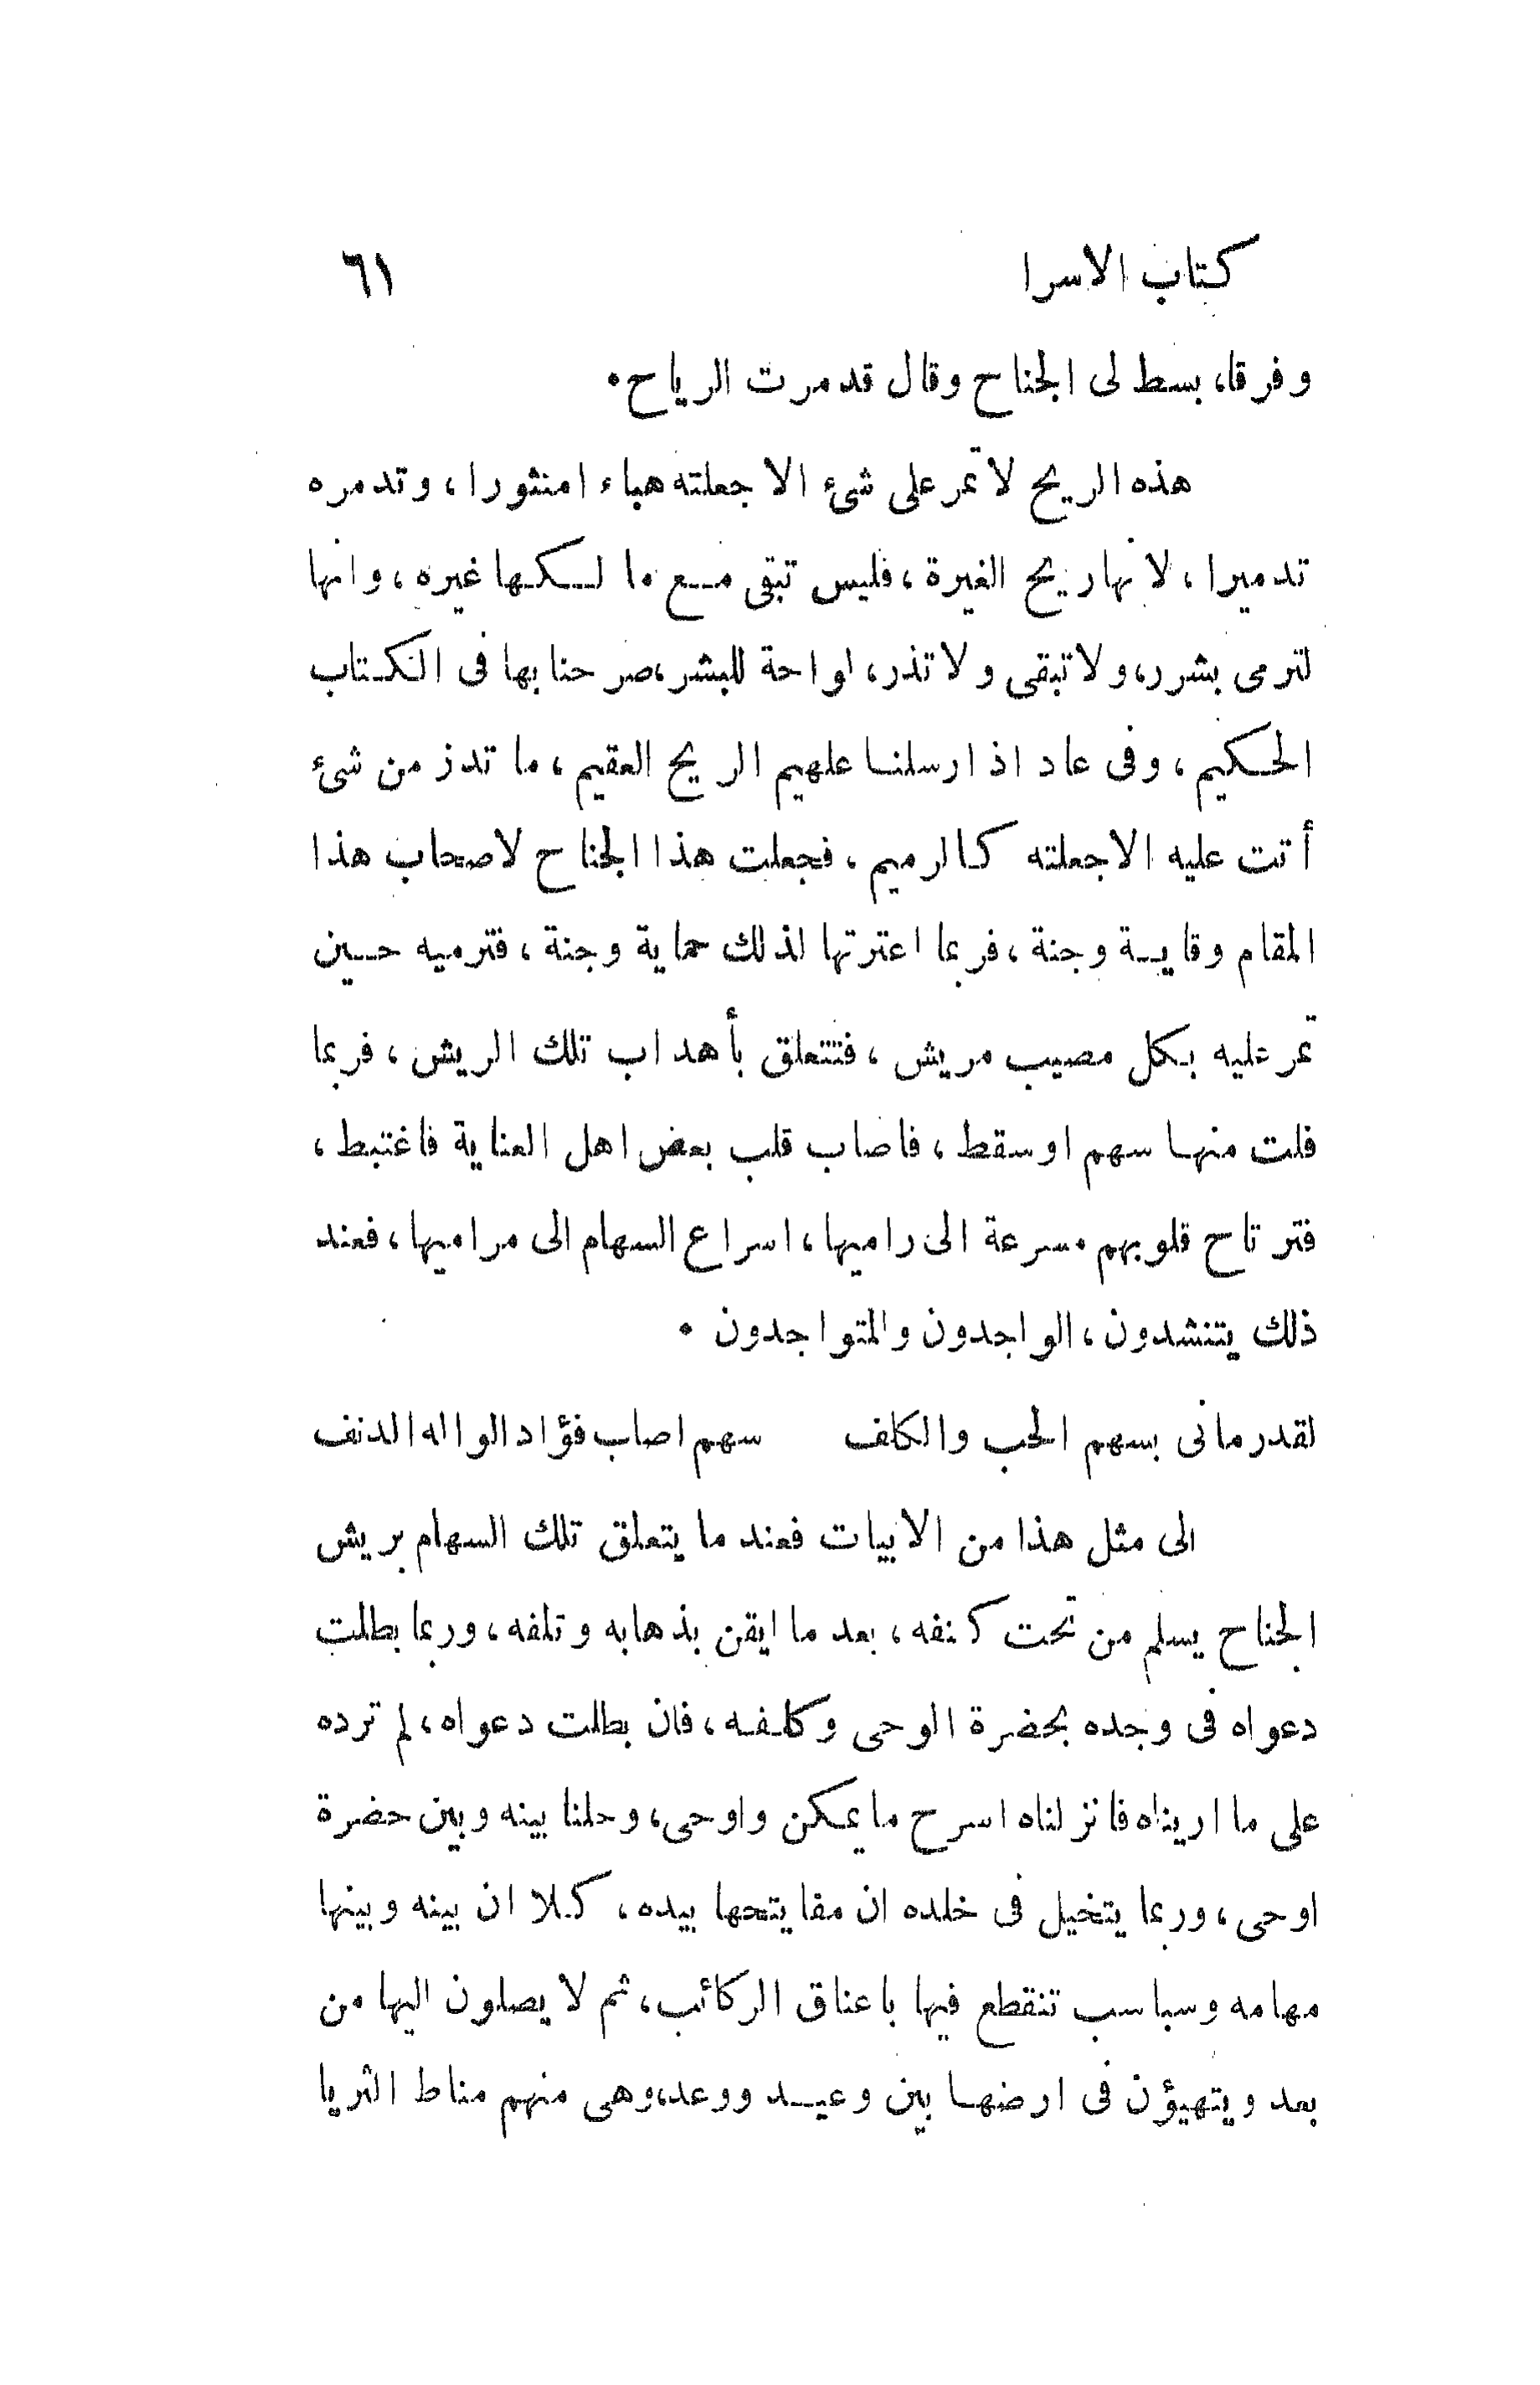 كتاب الاسرا ٦١
وفرقا، بسط لى الجناح وقال قد مرت الرياح.
هذه الريح لا تمر على شئ الا جعلته هباء امنثورا، وتدمره
تدميرا، لانها ريح الغيرة، فليس تبقى مع ما لكها غيره، وانها
لترمى بشرر، ولا تبقى ولا تذر، لواحة للبشر، صرحنا بها فى الكتاب
الحكيم، وفى عاد اذ ارسلنا عليهم الريح العقيم، ما تدز من شئ
أتت عليه الا جعلته كالرميم، فجعلت هذا الجناح لاصحاب هذا
المقام وقاية وجنة، فربما اعترتها لذلك حماية وجنة، فترميه حين
تمر عليه بكل مصيب مريش، فتتعلق بأهداب تلك الريش، فربما
فلت منها سهم او سقط، فاصاب قلب بعض اهل العناية فاغتبط،
فترتاح قلوبهم مسرعة الى راميها، اسراع السهام الى مراميها، فعند
ذلك يتنشدون، الواجدون والمتواجدون .
لقد رمانى بسهم الحب والكلف سهم اصاب فؤاد الواله الدنف
الى مثل هذا من الابيات فعند ما يتعلق تلك السهام بريش
الجناح يسلم من تحت كنفه، بعد ما ايقن بذهابه وتلفه، وربما بطلت
دعواه فى وجده بحضرة الوحى وكلفه، فان بطلت دعواه، لم ترده
على ما اريناه فانزلناه اسرح ما يمكن واوحى، وحلنا بينه وبين حضرة
اوحى، وربما يتخيل فى خلده ان مفا يتحها بيده، كلا ان بينه وبينها
مهامه وسباسب تنقطع فيها باعناق الركائب، ثم لا يصلون اليها من
بعد ويتهيؤن فى ارضها بين وعيد ووعد، وهى منهم مناط الثريا